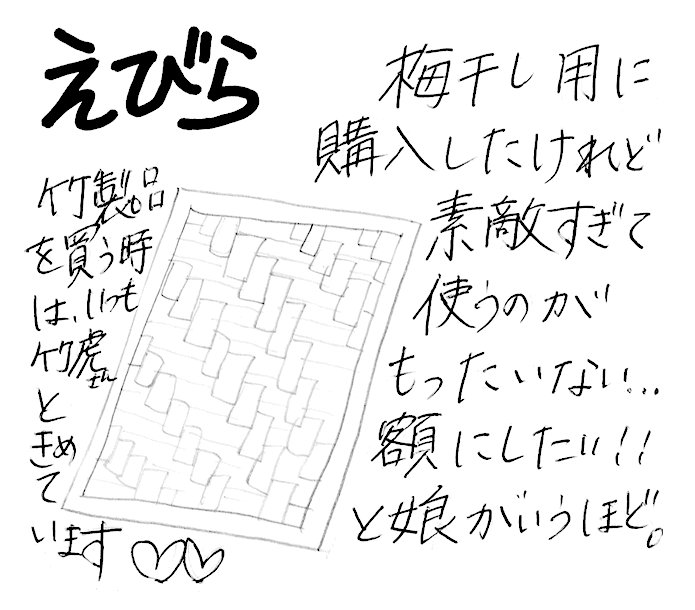 えびら
梅干し用に
購入したけれど
素敵すぎて
使うのが
もったいない...
額にしたい!!
と娘がいうほど。
竹製品
を買う時
は、いつも
竹虎さん
と
きめ
て
います♡♡